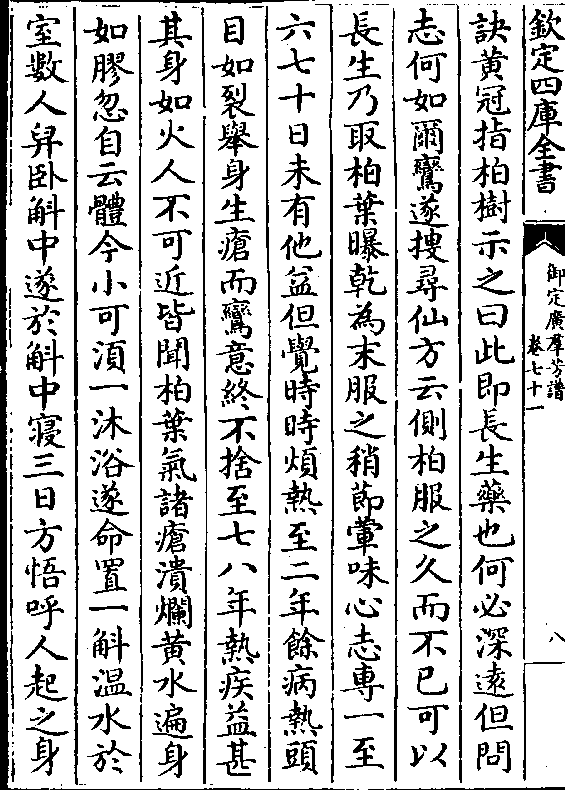 欽定四庫全書
御定廣羣芳譜
卷七十一
八
訣黃冠指柏樹示之曰此即長生藥也何必深遠但問
志何如爾鸞遂搜尋仙方云側柏服之久而不已可以
長生乃取柏葉曝乾為末服之稍節葷味心志專一至
六七十日未有他益但覺時時煩熱至二年餘病熱頭
目如裂舉身生瘡而鸞意終不捨至七八年熱疾益甚
其身如火人不可近皆聞柏葉氣諸瘡潰爛黃水遍身
如膠忽自云體今小可湏一沐浴遂命置一斛温水於
室數人舁卧斛中遂於斛中寢三日方悟呼人起之身